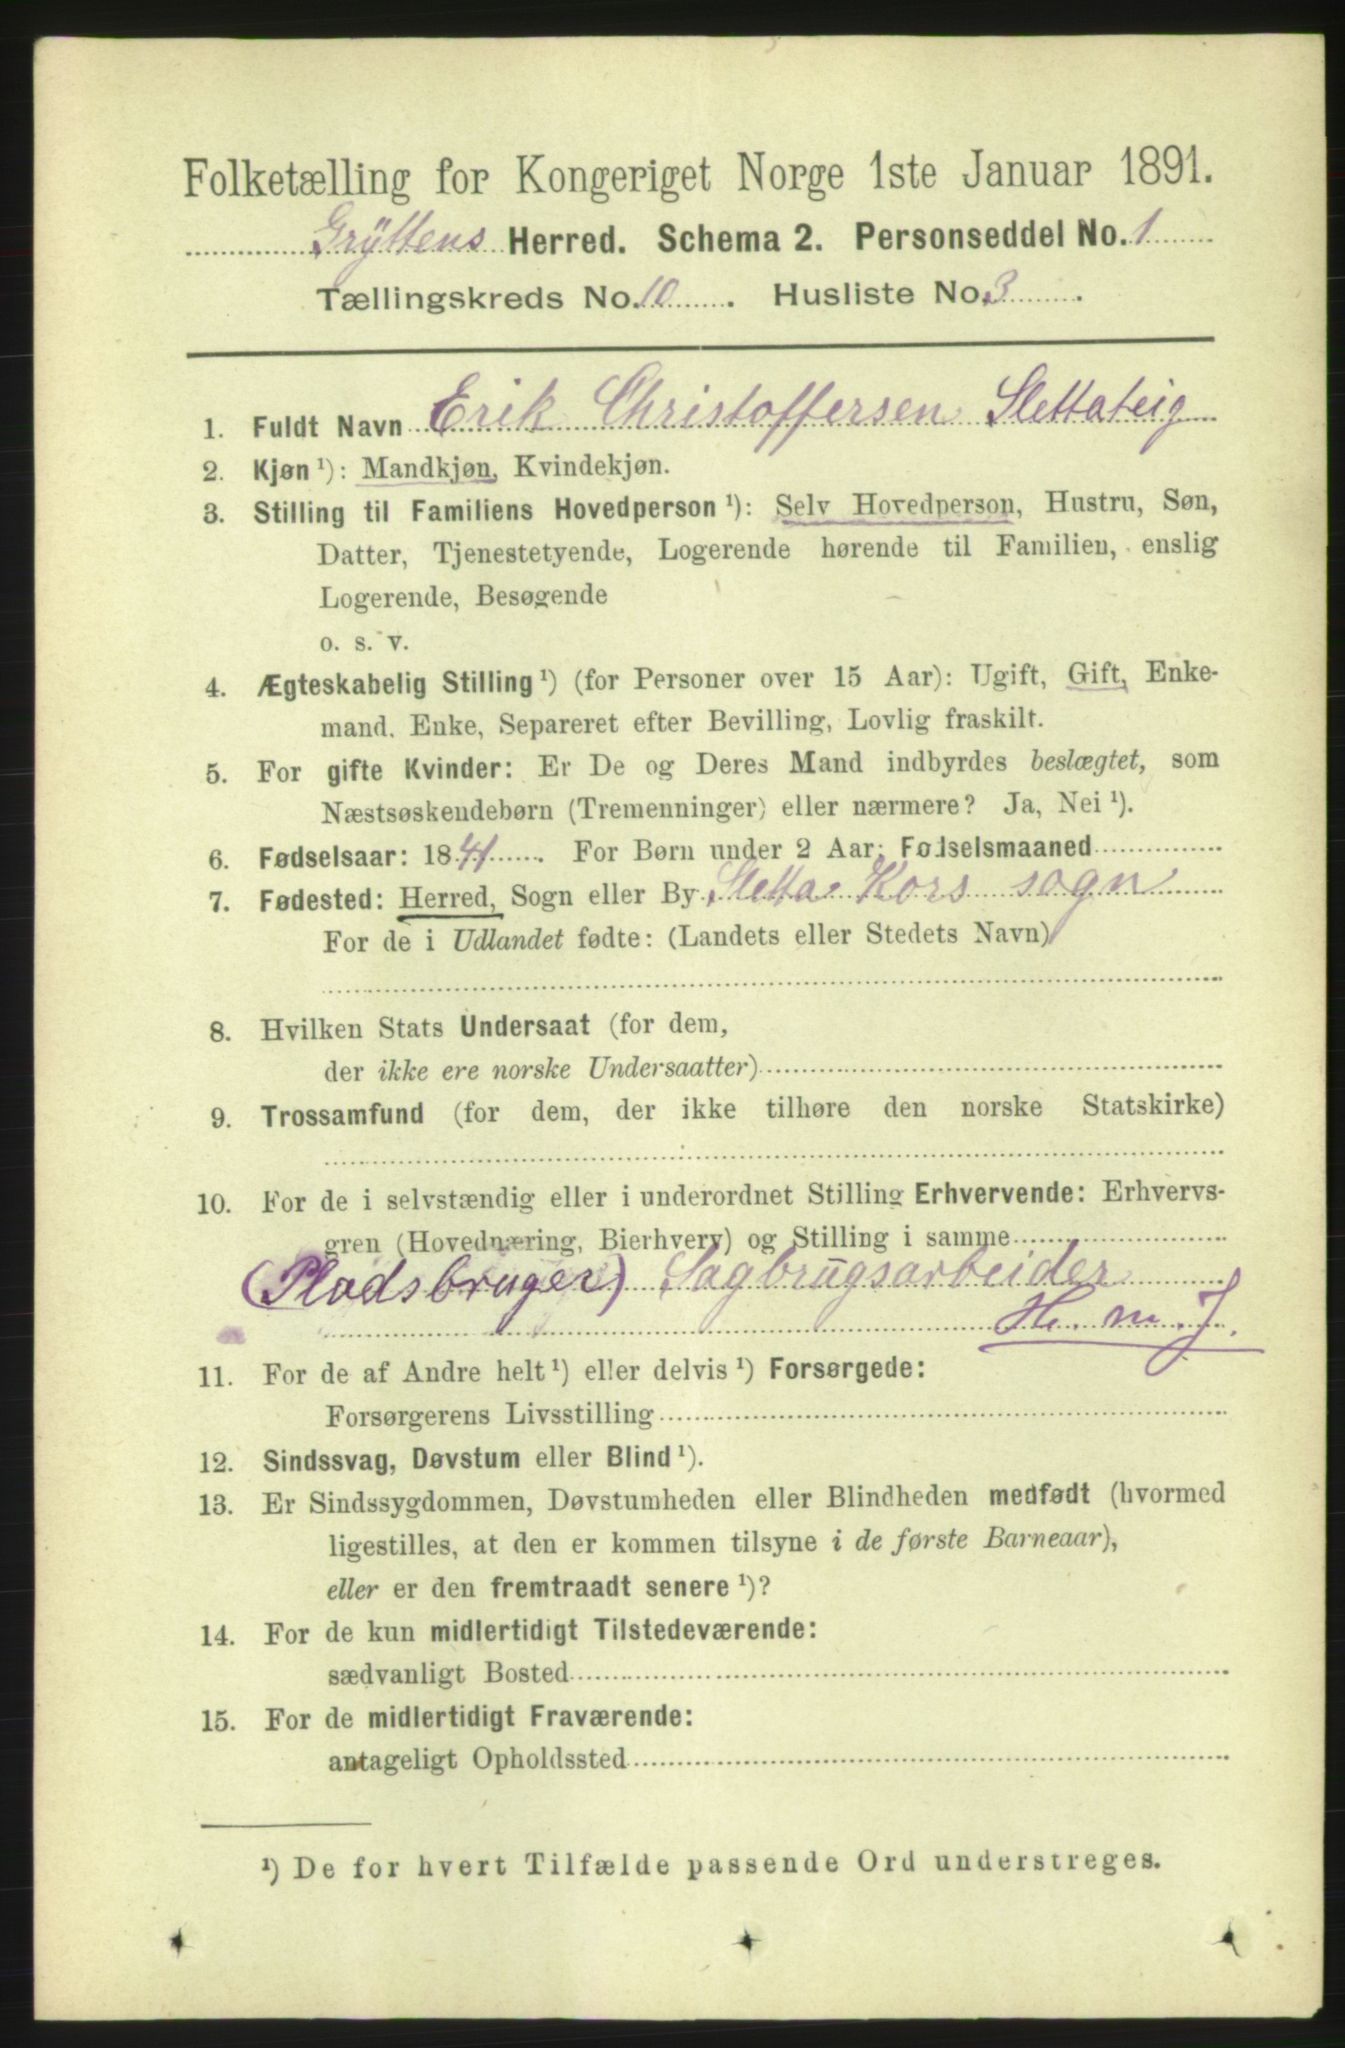 Folketælling for Kongeriget Norge 1ste Januar 1891.
Gryttens Herred. Schema 2. Personseddel No. 1
Tællingskreds No. 10. Husliste No. 3.
1. Fuldt Navn Erik Christoffersen Slettateig
2. Kjøn ¹): Mandkjøn, Kvindekjøn.
3. Stilling til Familiens Hovedperson ¹): Selv Hovedperson, Hustru, Søn,
Datter, Tjenestetyende, Logerende hørende til Familien, enslig
Logerende, Besøgende
o. s. v.
4. Ægteskabelig Stilling ¹) (for Personer over 15 Aar): Ugift, Gift, Enke-
mand, Enke, Separeret efter Bevilling, Lovlig fraskilt.
5. For gifte Kvinder: Er De og Deres Mand indbyrdes beslægtet, som
Næstsøskendebørn (Tremenninger) eller nærmere? Ja, Nei ¹).
6. Fødselsaar: 1841. For Børn under 2 Aar: Fødselsmaaned
7. Fødested: Herred, Sogn eller By Sletta Kors sogn
For de i Udlandet fødte: (Landets eller Stedets Navn)
8. Hvilken Stats Undersaat (for dem,
der ikke ere norske Undersaatter)
9. Trossamfund (for dem, der ikke tilhøre den norske Statskirke)
10. For de i selvstændig eller i underordnet Stilling Erhvervende: Erhvervs-
gren (Hovednæring, Bierhverv) og Stilling i samme
(Pladsbruger) Sagbrugsarbeider
H. m. J.
11. For de af Andre helt ¹) eller delvis ¹) Forsørgede:
Forsørgerens Livsstilling
12. Sindssvag, Døvstum eller Blind ¹).
13. Er Sindssygdommen, Døvstumheden eller Blindheden medfødt (hvormed
ligestilles, at den er kommen tilsyne i de første Barneaar),
eller er den fremtraadt senere ¹)?
14. For de kun midlertidigt Tilstedeværende:
sædvanligt Bosted
15. For de midlertidigt Fraværende:
antageligt Opholdssted
¹) De for hvert Tilfælde passende Ord understreges.